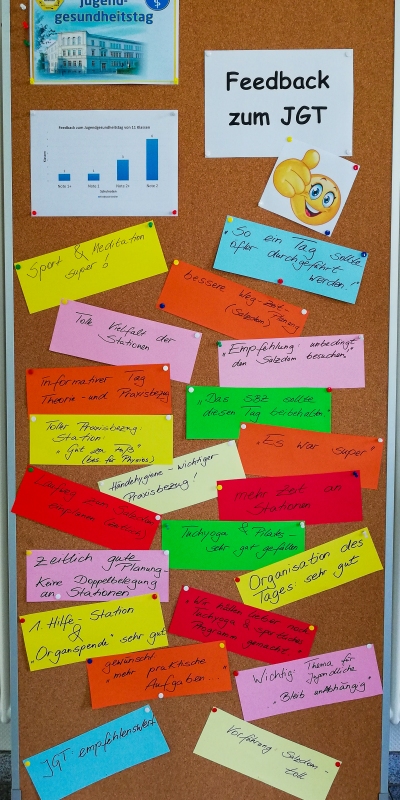 Jugend-
gesundheitstag
Feedback
zum JGT
Feedback zum Jugendgesundheitstag von 11 Klassen
Note 1+
Note 1
Note 2+
Note 2
Sport & Meditation
super!
„So ein Tag sollte
öfter durchgeführt
werden!"
bessere Weg-Zeit-
(Salzdom) Planung
Tolle Vielfalt der
Stationen
„Empfehlung: unbedingt
den Salzdom besuchen"
informativer Tag
Theorie- und Praxisbezug
„Das SBZ sollte
diesen Tag beibehalten"
Toller Praxisbezug
Station:
„Gut zu Fuß"
(bes. für Physios)
„Es war super"
Händehygiene - wichtiger
Praxisbezug!
zum Salzdom
einplanen
mehr Zeit an
Stationen
Tachyoga & Pilates -
sehr gut gefallen
zeitlich gute
Planung-
Keine Doppelbelegung
an Stationen
Organisation des
Tages: sehr gut
1 Hilfe-Station
&
„Organspende" sehr gut
„Wir hätten lieber noch
Tachyoga &
Programm gemacht"
gewünscht
„mehr praktische
Aufgaben..."
Wichtig: Thema für
Jugendliche
„Bleib unabhängig"
JGT: empfehlenswert
Vorführung: Salzdom -
toll